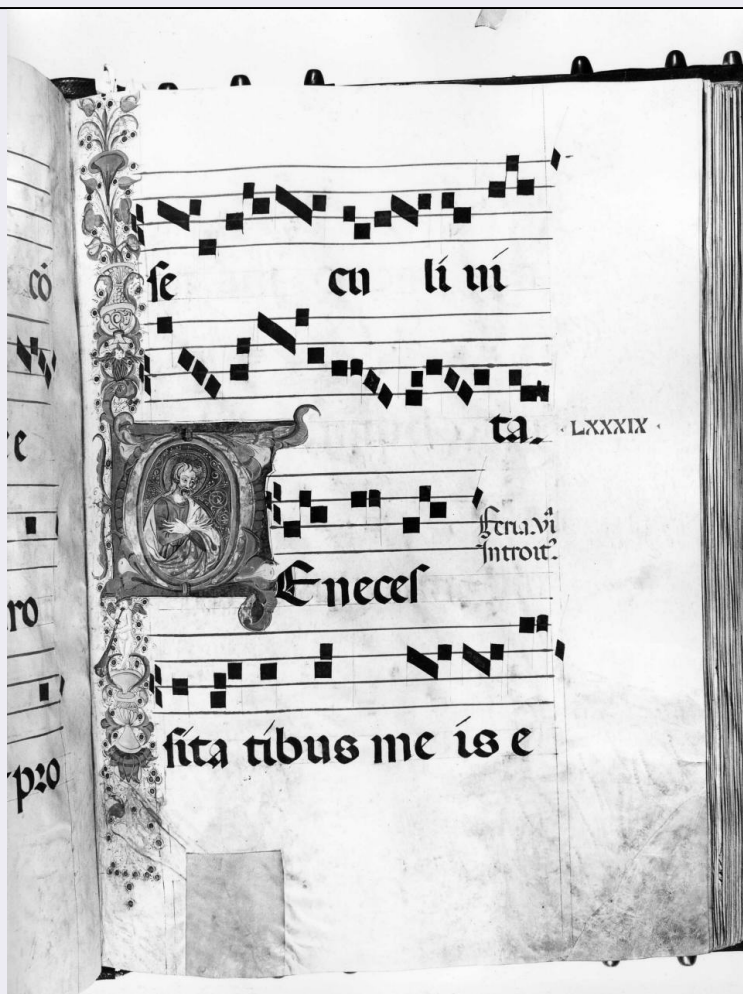 cō
e
ro
pro
ſe cu li ui
ta.
· LXXXIX ·
Feria.vi
Introit.
DE neceſ
ſita tibus me is e